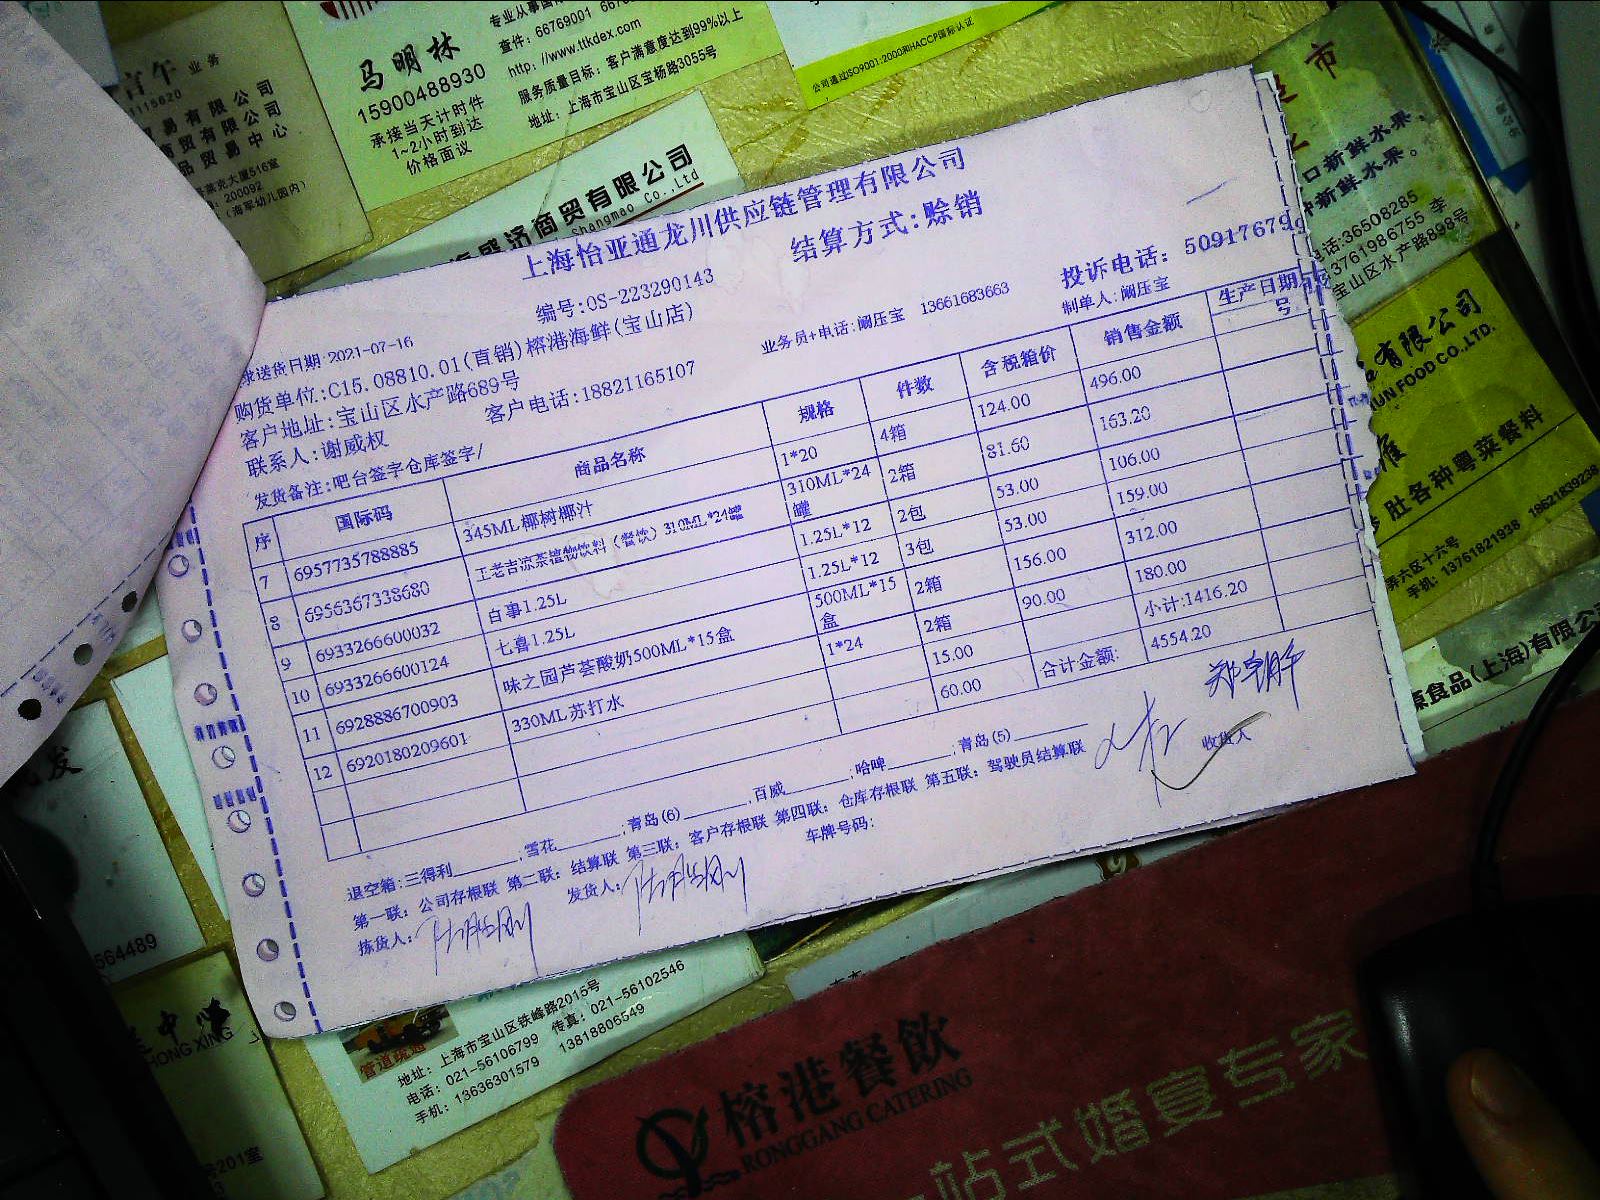 马明林
15900488930
承接当天计时件
1~2小时到达
价格面议
http://www.ttkdex.com
服务质量目标：客户满意度达到99%以上
地址：上海市宝山区宝杨路3055号
公司通过ISO9001:2000和HACCP国际认证
业务
1115620
贸易有限公司
商贸有限公司
品贸易中心
莱克大厦516室
200092
(海军幼儿园内)
盛济商贸有限公司
Shangmao Co.,Ltd
上海怡亚通龙川供应链管理有限公司
编号:OS-223290143
结算方式:赊销
投诉电话: 50917679
送货日期:2021-07-16
购货单位:C15.08810.01(直销)榕港海鲜(宝山店)
业务员+电话:阚压宝 13661683663
制单人:阚压宝
客户地址:宝山区水产路689号
客户电话:18821165107
联系人:谢威权
发货备注:吧台签字仓库签字/
序 国际码 商品名称 规格 件数 含税箱价 销售金额 生产日期 号
7 6957735788885 345ML椰树椰汁 1*20 4箱 124.00 496.00
8 6956367338680 王老吉凉茶植物饮料（餐饮）310ML*24罐 310ML*24罐 2箱 81.60 163.20
9 6933266600032 百事1.25L 1.25L*12 2包 53.00 106.00
10 6933266600124 七喜1.25L 1.25L*12 3包 53.00 159.00
11 6928886700903 味之园芦荟酸奶500ML*15盒 500ML*15盒 2箱 156.00 312.00
12 6920180209601 330ML苏打水 1*24 2箱 90.00 180.00
15.00 小计:1416.20
60.00 合计金额: 4554.20
退空箱:三得利______;雪花______;青岛(6)______;百威______;哈啤______;青岛(5)______
第一联: 公司存根联 第二联: 结算联 第三联: 客户存根联 第四联: 仓库存根联 第五联: 驾驶员结算联
收货人
拣货人:
发货人:
车牌号码:
市
口新鲜水果，
种新鲜水果。
电话:36508285
13761986755 李
宝山区水产路898号
有限公司
UN FOOD CO.,LTD.
肚各种粤菜餐料
弄六区十六号
手机: 13761821938 18621839238
源食品(上海)有限公司
564489
HONG XING
201室
管道疏通
地址: 上海市宝山区铁峰路2015号
电话: 021-56106799 传真: 021-56102546
手机: 13636301579 13818806549
榕港餐饮
RONGGANG CATERING
一站式婚宴专家